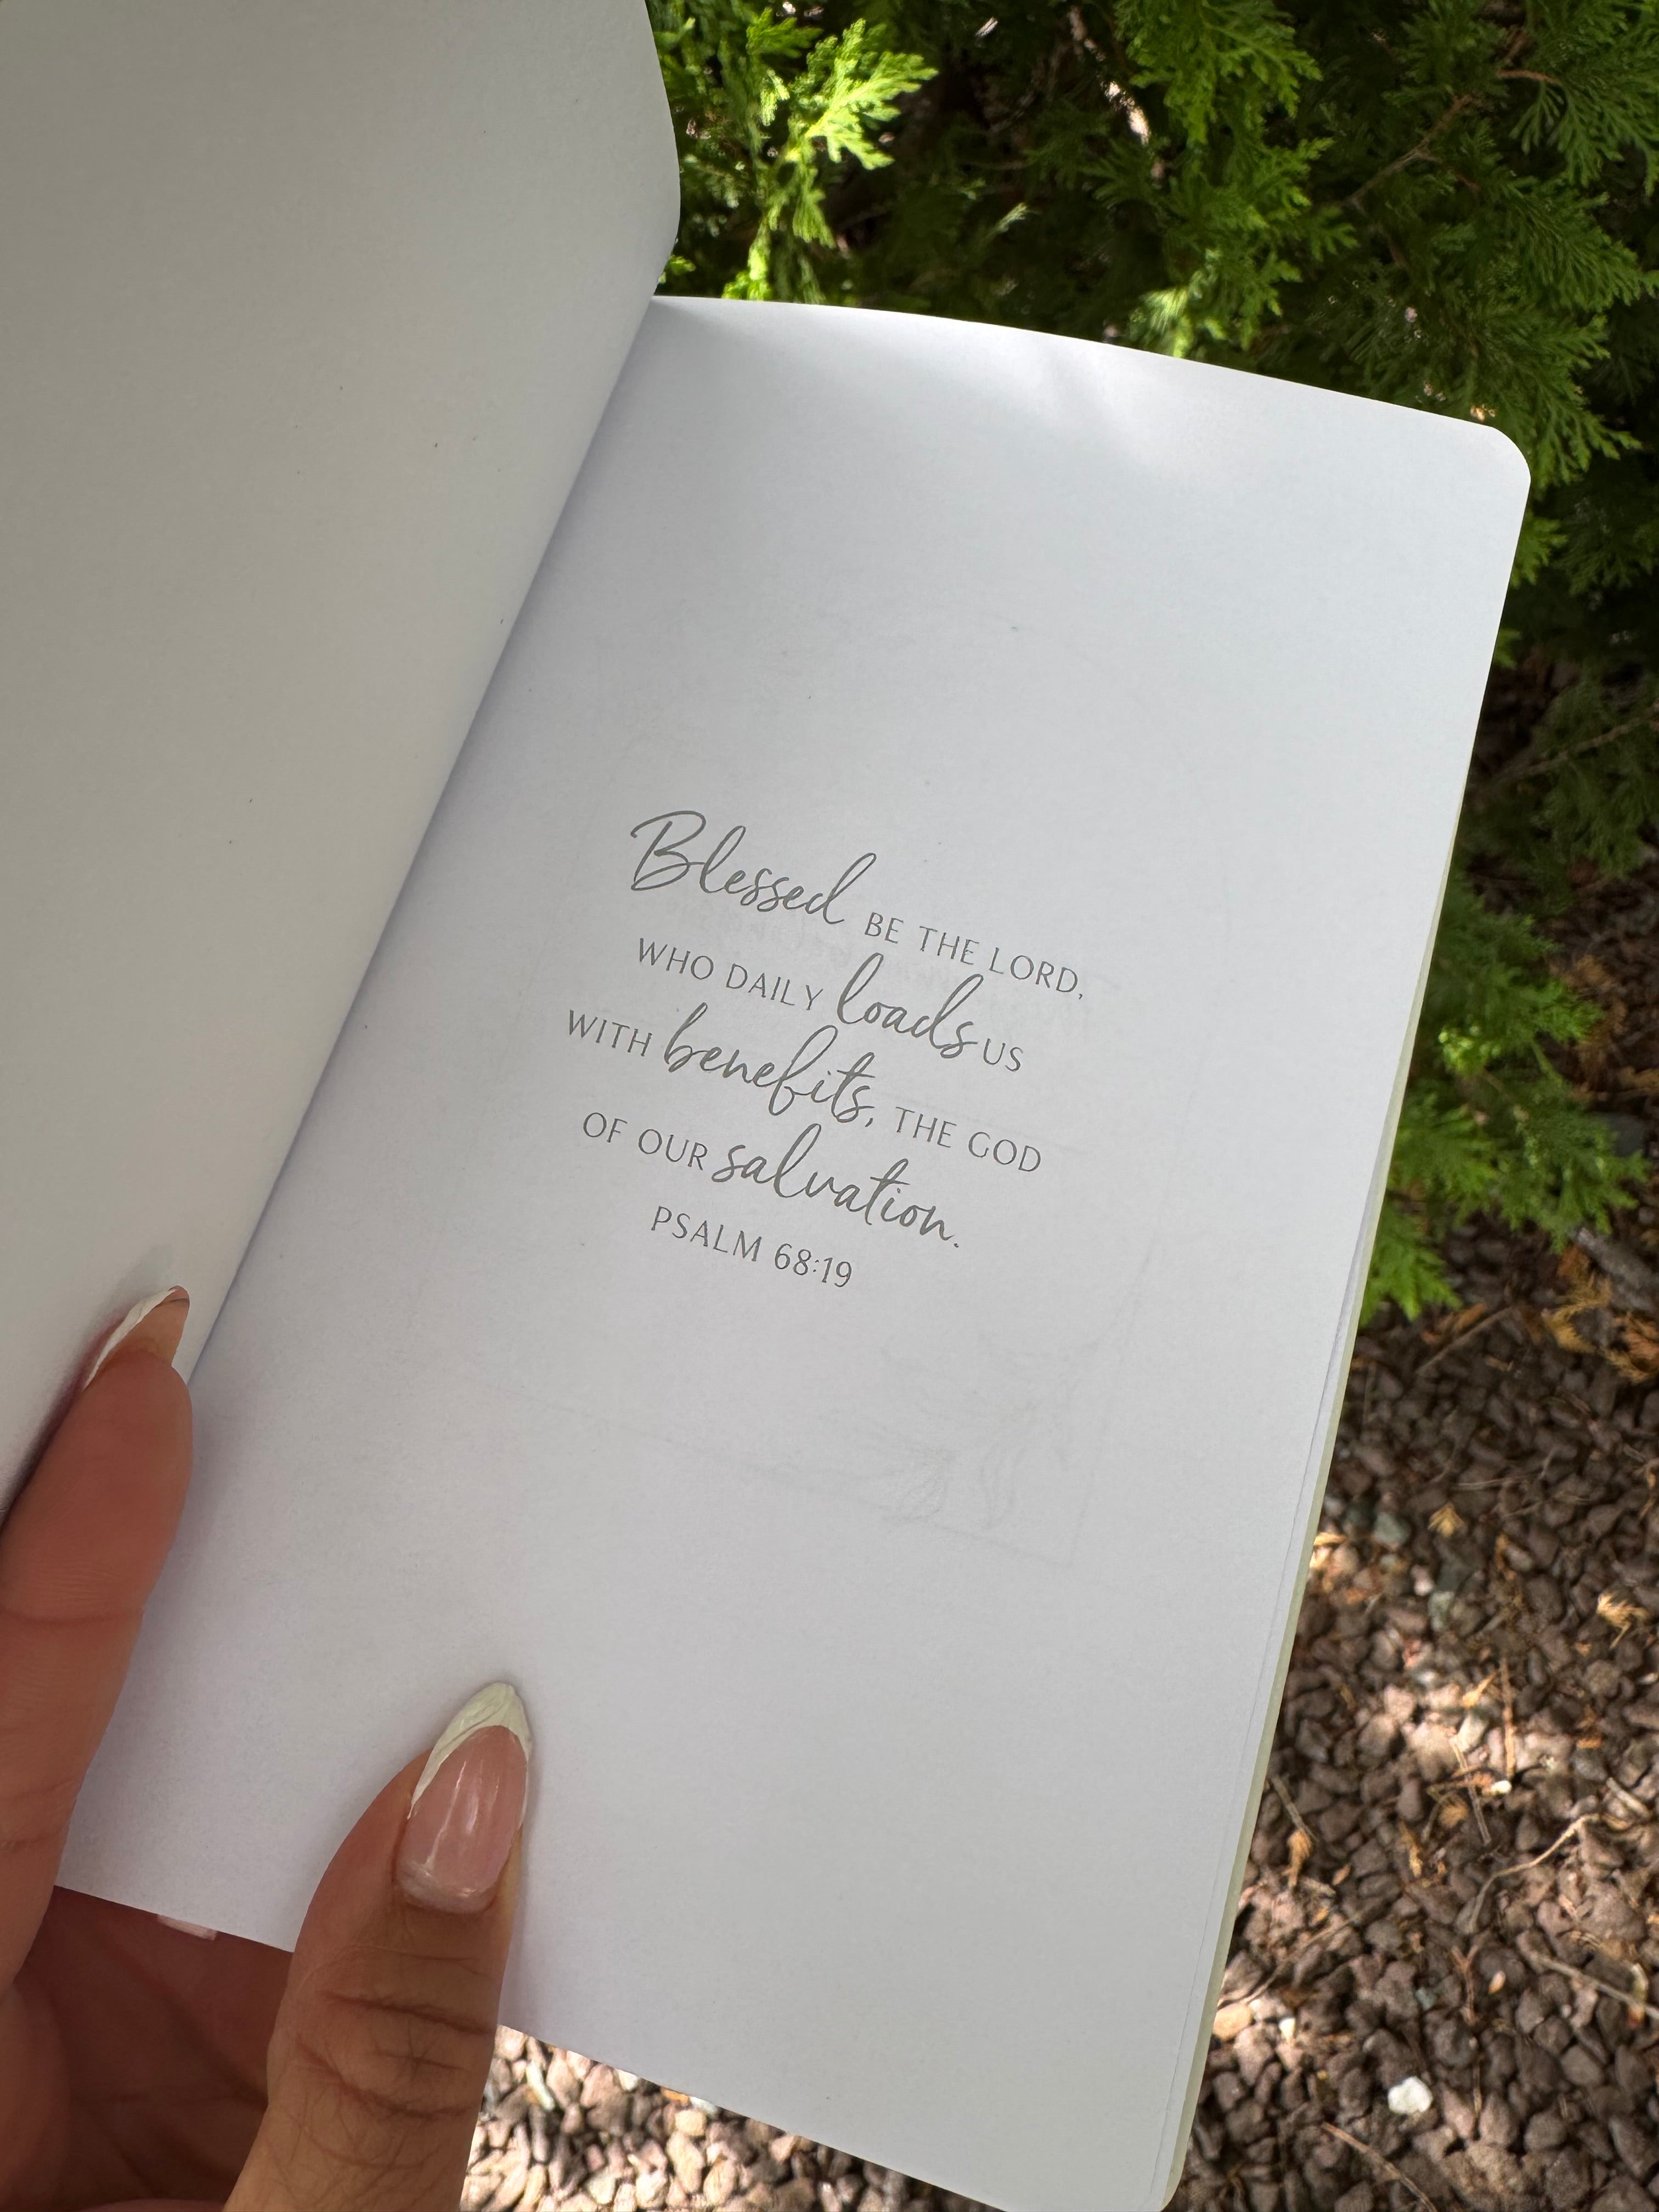 Blessed BE THE LORD,
WHO DAILY loads US
WITH benefits, THE GOD
OF OUR salvation.
PSALM 68:19